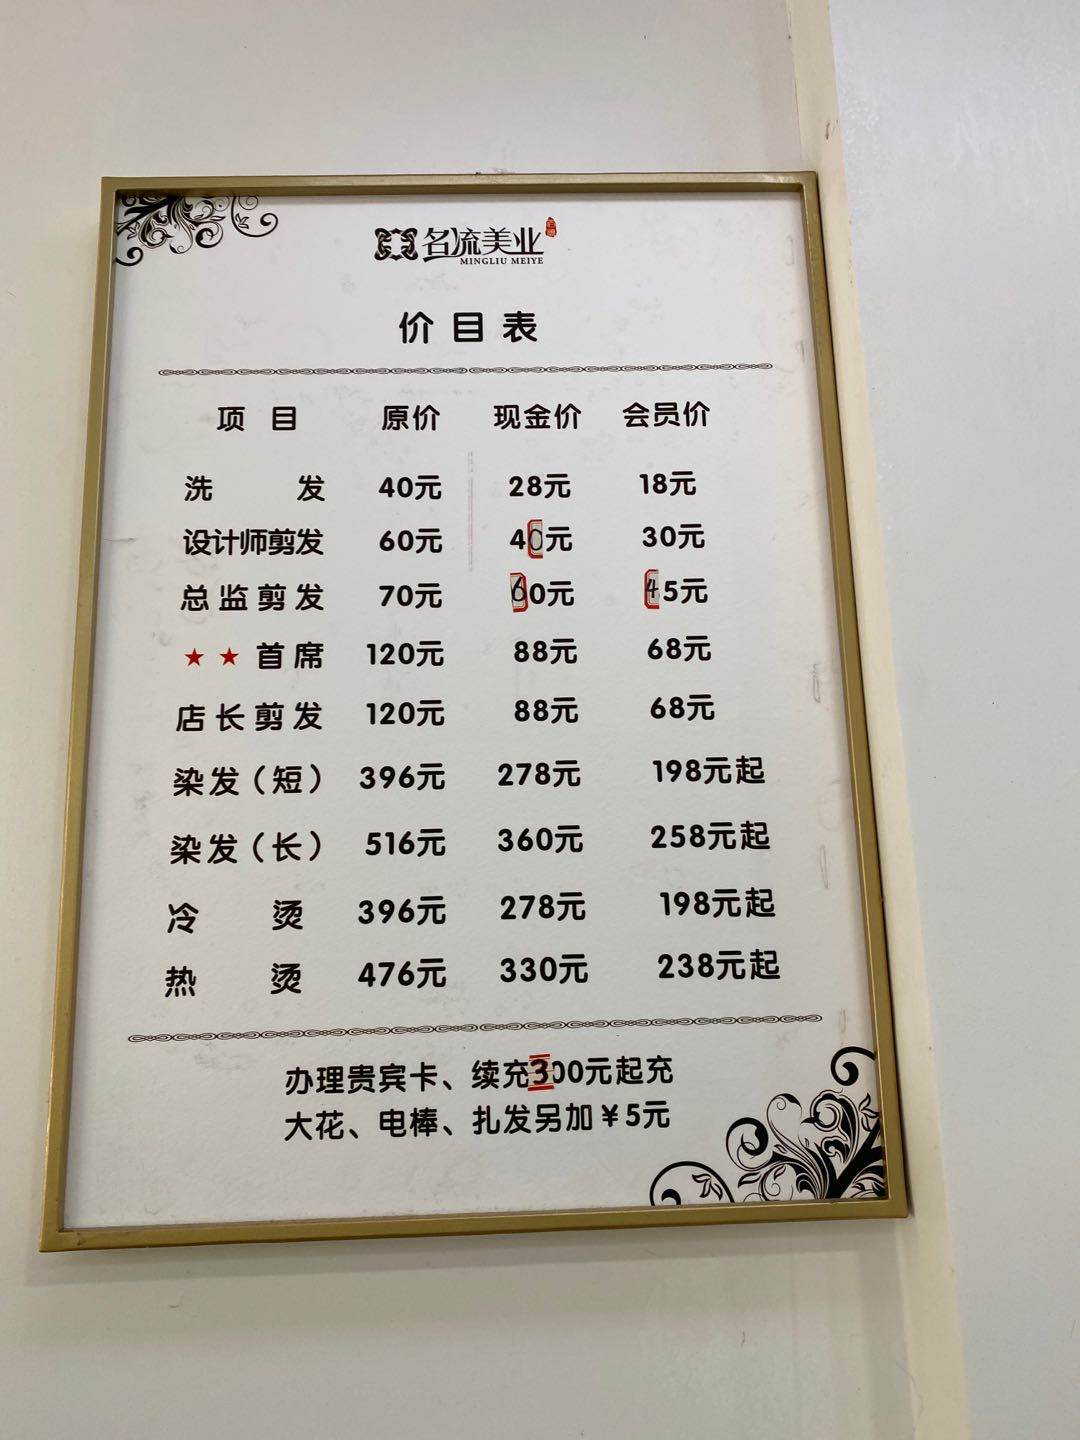 名流美业
MINGLIU MEIYE
价目表
项目 原价 现金价 会员价
洗发 40元 28元 18元
设计师剪发 60元 40元 30元
总监剪发 70元 60元 45元
★★首席 120元 88元 68元
店长剪发 120元 88元 68元
染发(短) 396元 278元 198元起
染发(长) 516元 360元 258元起
冷烫 396元 278元 198元起
热烫 476元 330元 238元起
办理贵宾卡、续充300元起充
大花、电棒、扎发另加¥5元